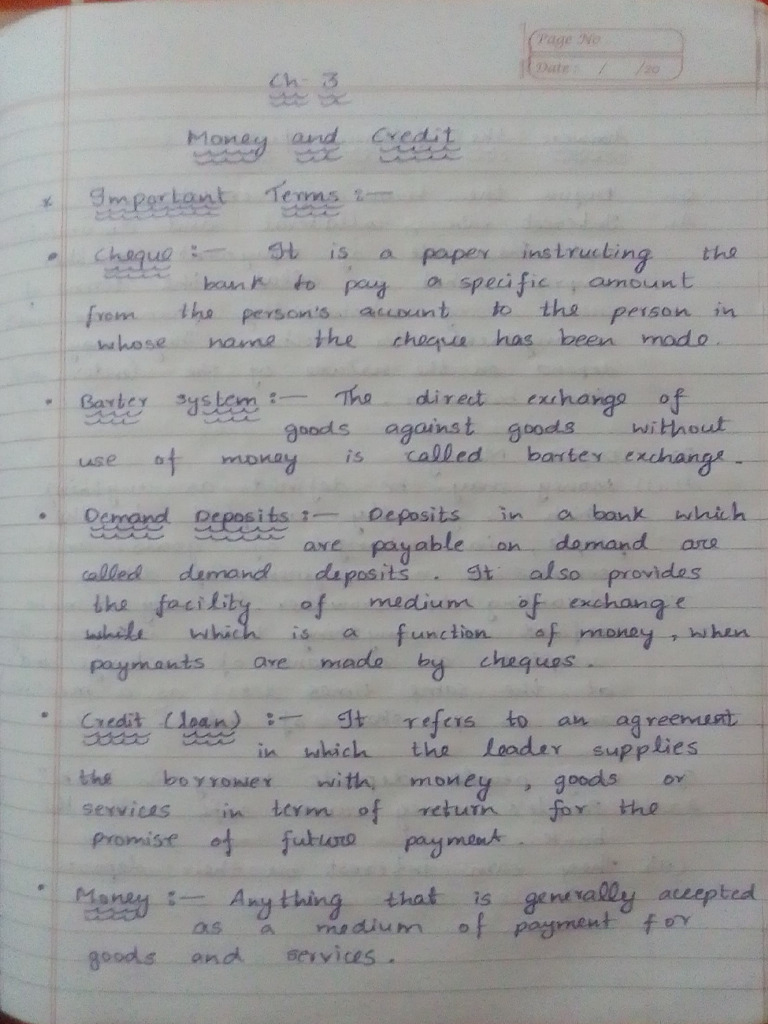 Page No
Date : / /20
Ch 3
Money and Credit
* Important Terms :—
• Cheque :— It is a paper instructing the
bank to pay a specific amount
from the person's account to the person in
whose name the cheque has been made.
• Barter system :— The direct exchange of
goods against goods without
use of money is called barter exchange.
• Demand Deposits :— Deposits in a bank which
are payable on demand are
called demand deposits. It also provides
the facility of medium of exchange
while which is a function of money, when
payments are made by cheques.
• Credit (loan) :— It refers to an agreement
in which the leader supplies
the borrower with, money, goods or
services in term of return for the
promise of future payment.
• Money :— Anything that is generally accepted
as a medium of payment for
goods and services.